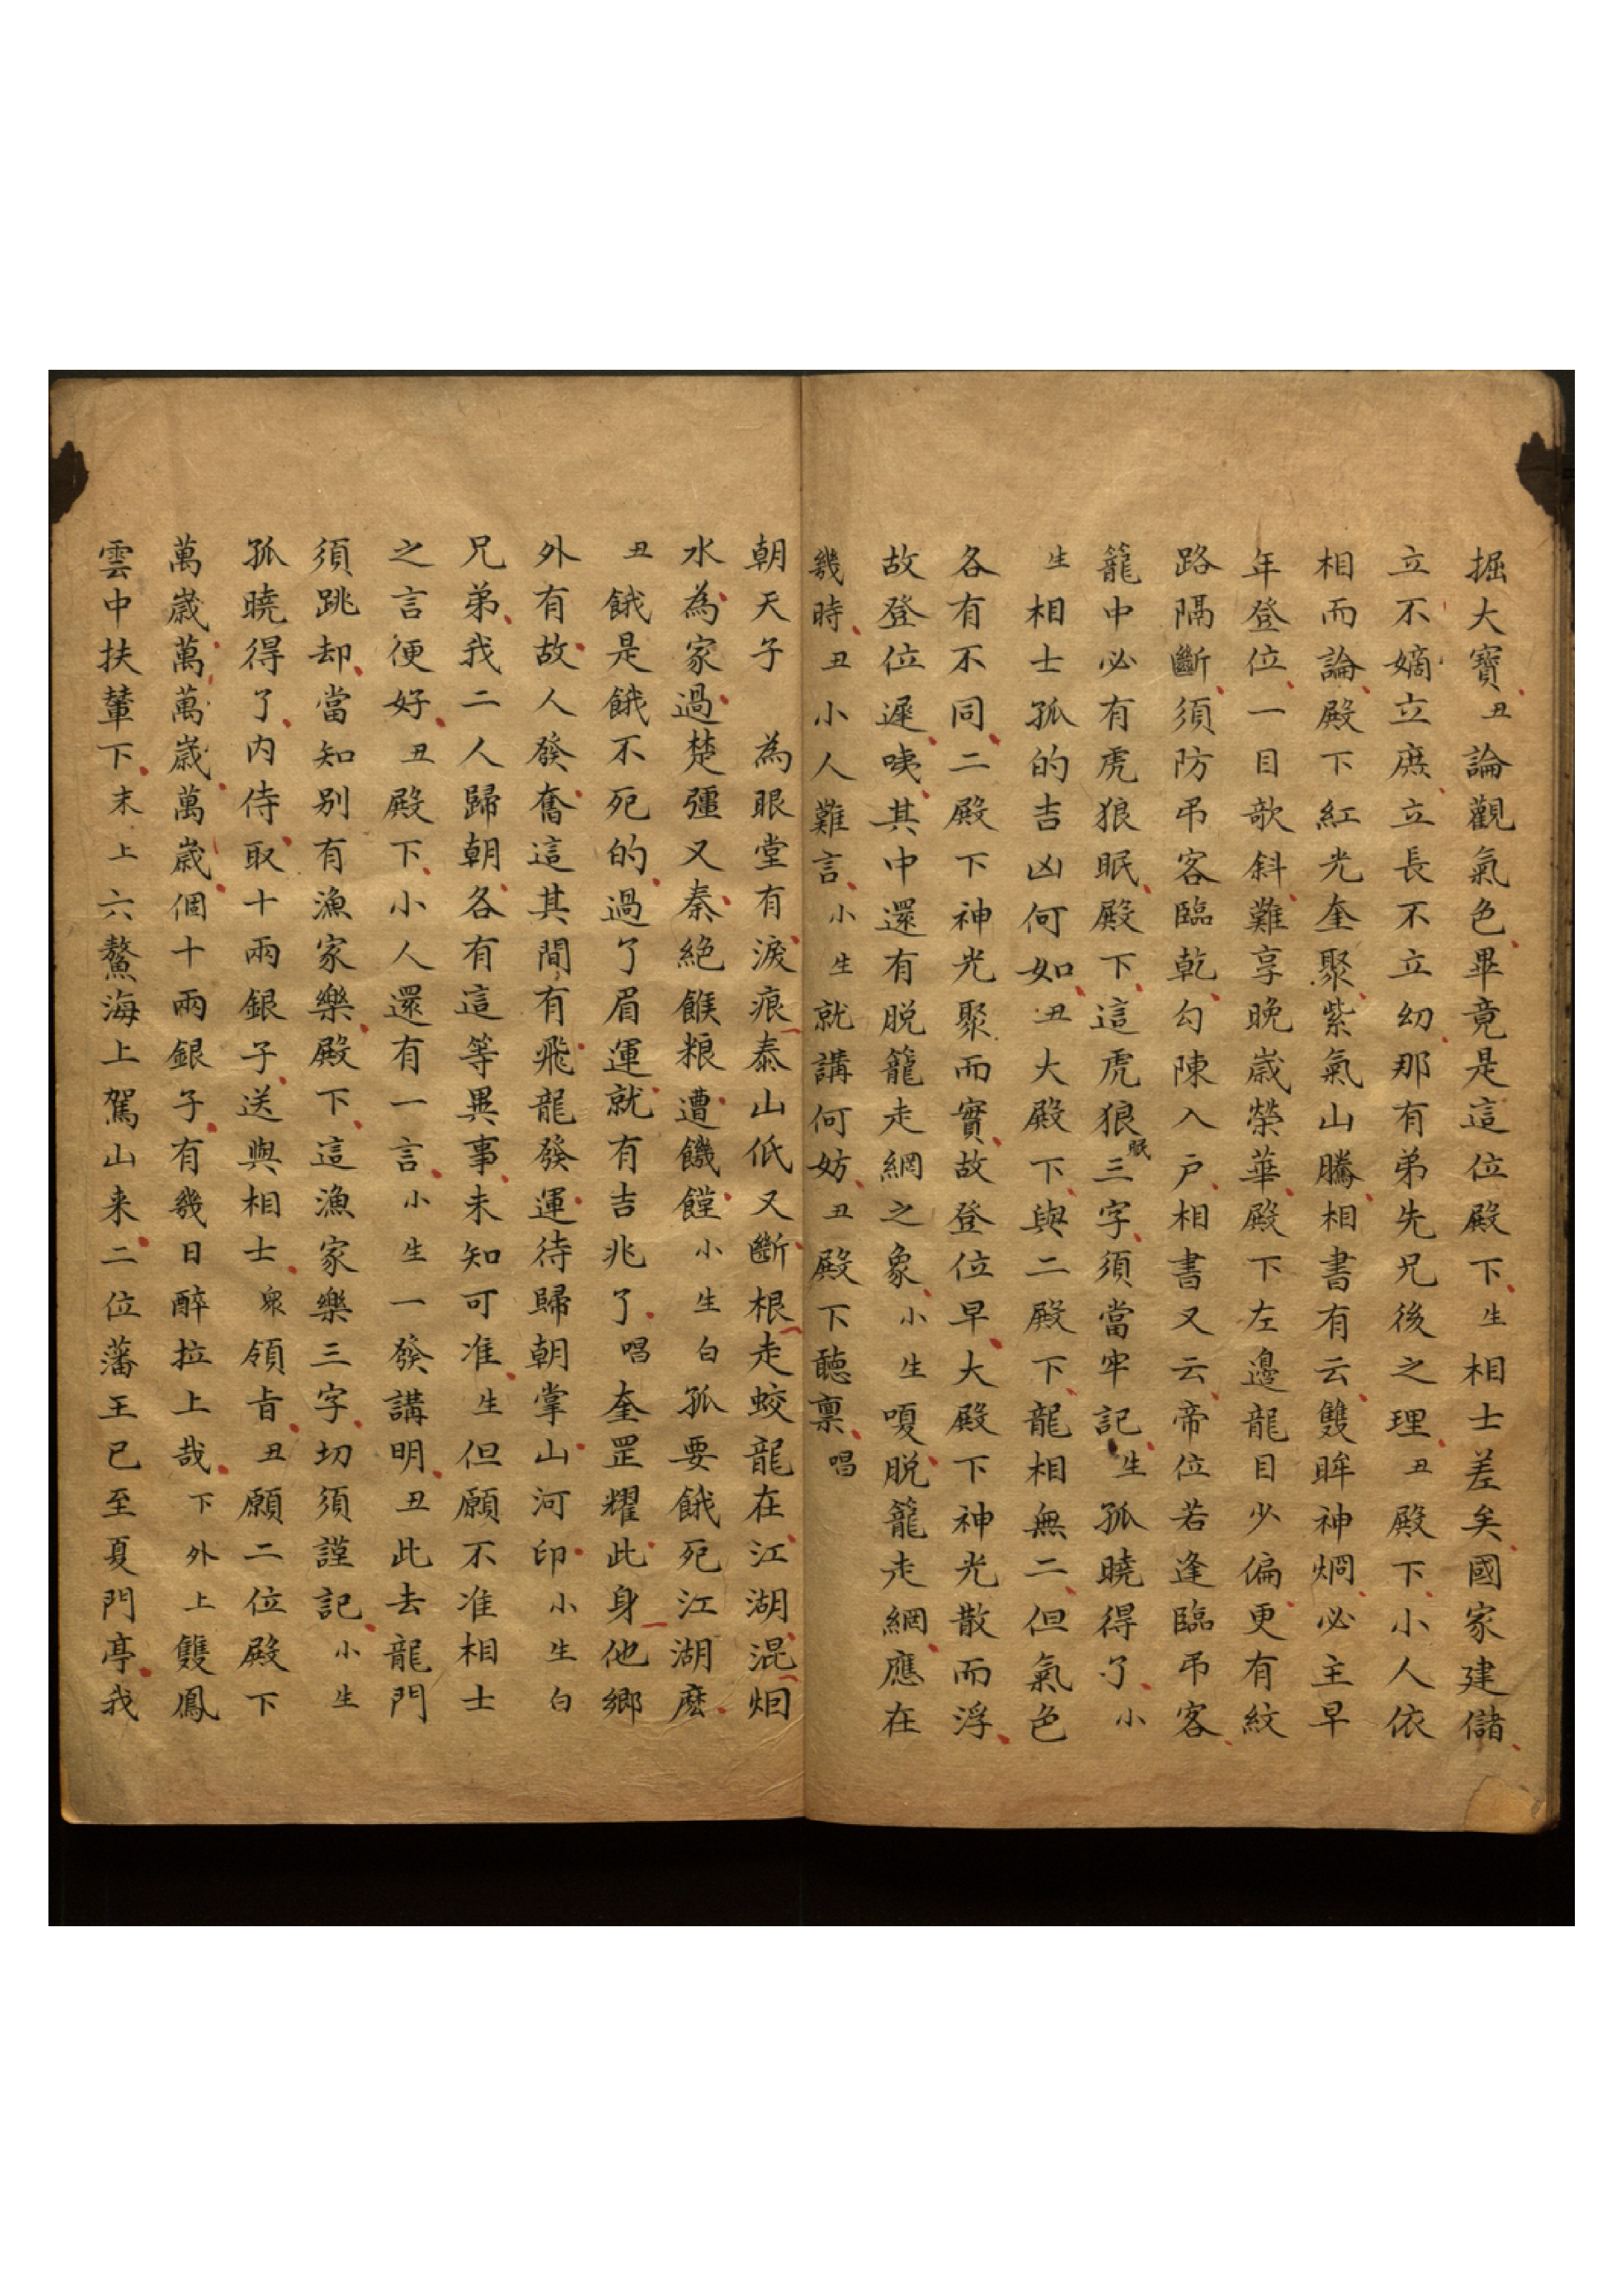 掘大寶丑論觀氣色畢竟是這位殿下生相士差矣國家建儲
立不嫡立庶立長不立幼那有弟先兄後之理丑殿下小人依
相而論殿下紅光奎聚紫氣山騰相書有云雙眸神烱必主早
年登位一目歌斜難享晚歲榮華殿下左邊龍目少偏更有紋
路隔斷須防弔客臨乾勾陳入戶相書又云帝位若逢臨弔客
籠中必有虎狼眠殿下這虎狼眠三字須當牢記生孤曉得了小
生相士孤的吉凶何如丑大殿下與二殿下龍相無二但氣色
各有不同二殿下神光聚而實故登位早大殿下神光散而浮
故登位遲咦其中還有脱籠走網之象小生嗄脱籠走網應在
幾時丑小人難言小生就講何妨丑殿下聽禀唱
朝天子 為眼堂有淚痕泰山低又斷根走蛟龍在江湖混烟
水為家過楚彊又秦絶餱粮遭饑饉小生白孤要餓死江湖麽
丑餓是餓不死的過了眉運就有吉兆了唱奎罡耀此身他鄉
外有故人發奮這其間有飛龍發運待歸朝掌山河印小生白
兄弟我二人歸朝各有這等異事未知可准生但願不准相士
之言便好丑殿下小人還有一言小生一發講明丑此去龍門
須跳却當知别有漁家樂殿下這漁家樂三字切須謹記小生
孤曉得了内侍取十兩銀子送與相士衆領旨丑願二位殿下
萬歲萬萬歲萬歲個十兩銀子有幾日醉拉上哉下外上雙鳳
雲中扶輦下末上六鰲海上駕山来二位藩王已至夏門亭我